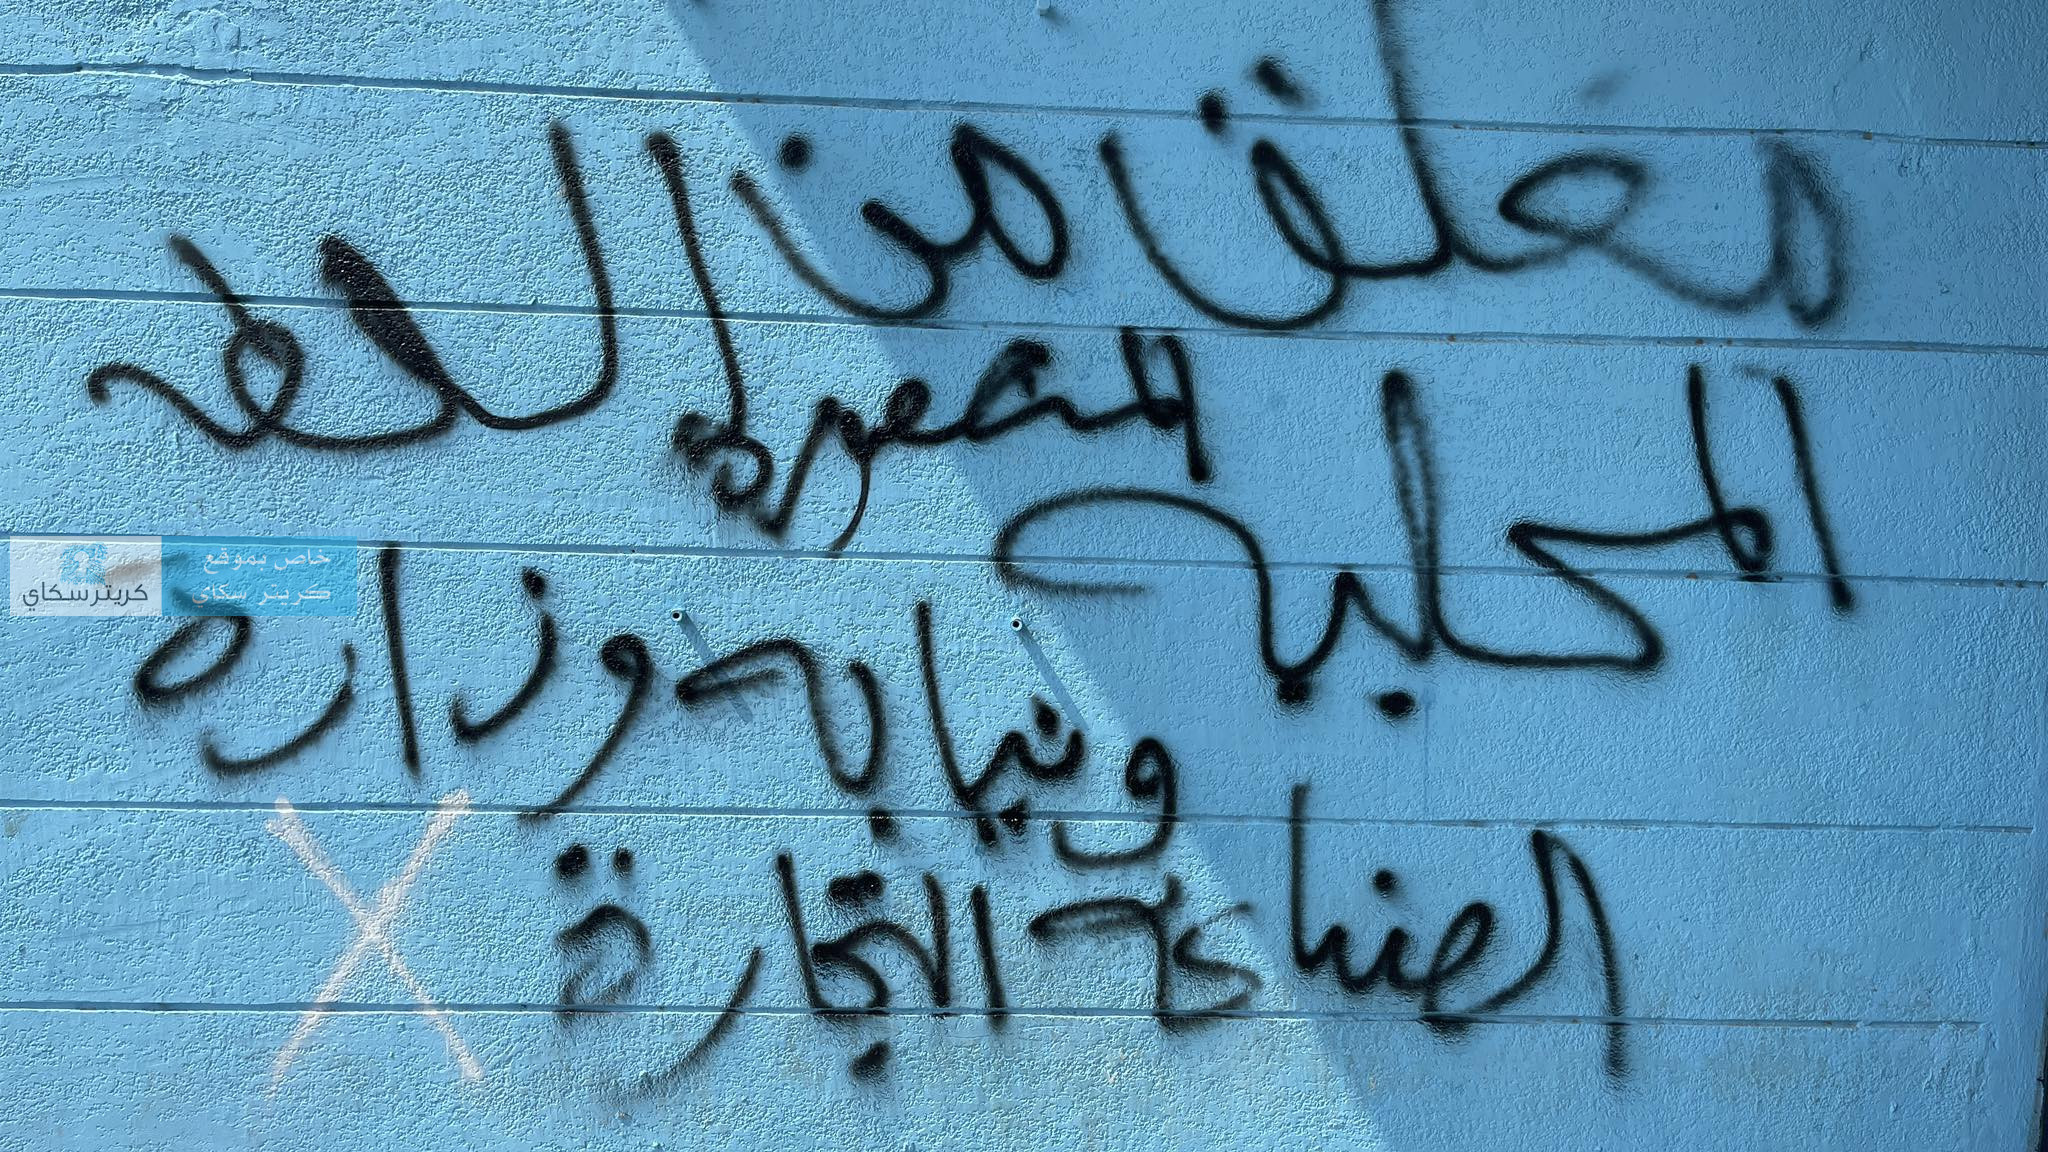 مغلق من السلطه
المحلية المنصورة
ونيابه وزارة
الصناعه التجارة
خاص بموقع
كريتر سكاي
كريتر سكاي